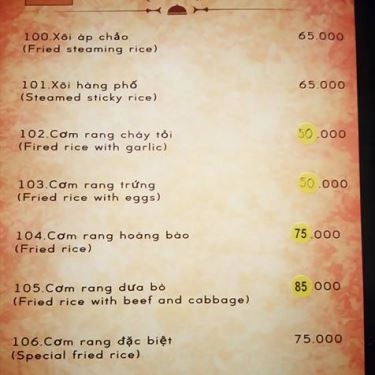 100.Xôi áp chảo 65.000
(Fried steaming rice)
101.Xôi hàng phố 65.000
(Steamed sticky rice)
102.Cơm rang cháy tỏi 50.000
(Fired rice with garlic)
103.Cơm rang trứng 50.000
(Fried rice with eggs)
104.Cơm rang hoàng bào 75.000
(Fried rice)
105.Cơm rang dưa bò 85.000
(Fried rice with beef and cabbage)
106.Cơm rang đặc biệt 75.000
(Special fried rice)